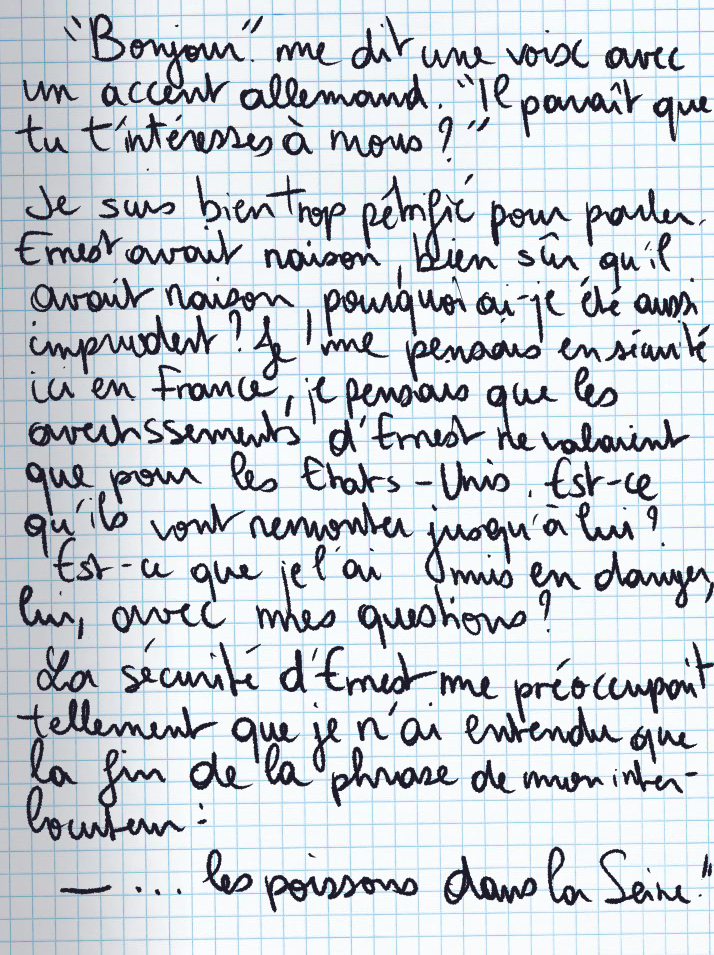 "Bonjour." me dit une voix avec
un accent allemand. "Il paraît que
tu t'intéresses à nous ?"
Je suis bien trop pétrifié pour parler.
Ernest avait raison, bien sûr qu'il
avait raison, pourquoi ai-je été aussi
imprudent ? Je me pensais en sécurité
ici en France, je pensais que les
avertissements d'Ernest ne valaient
que pour les Etats-Unis. Est-ce
qu'ils vont remonter jusqu'à lui ?
Est-ce que je l'ai mis en danger,
lui, avec mes questions ?
La sécurité d'Ernest me préoccupait
tellement que je n'ai entendu que
la fin de la phrase de mon inter-
locuteur :
— ... les poissons dans la Seine."